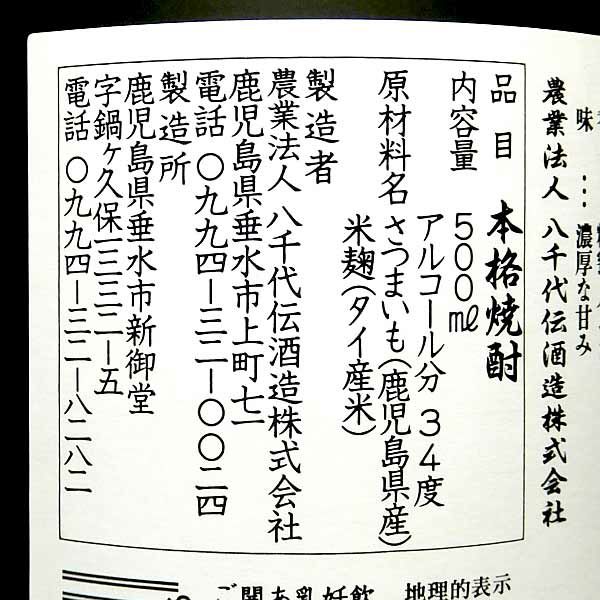 味…濃厚な甘み
農業法人 八千代伝酒造株式会社
品目 本格焼酎
内容量 500㎖
アルコール分 34度
原材料名 さつまいも(鹿児島県産)
米麹(タイ産米)
製造者
農業法人 八千代伝酒造株式会社
鹿児島県垂水市上町七一
電話 〇九九四ー三二ー〇〇二四
製造所
鹿児島県垂水市新御堂
字鍋ヶ久保一三三二ー五
電話 〇九九四ー三二ー八二八二
地理的表示